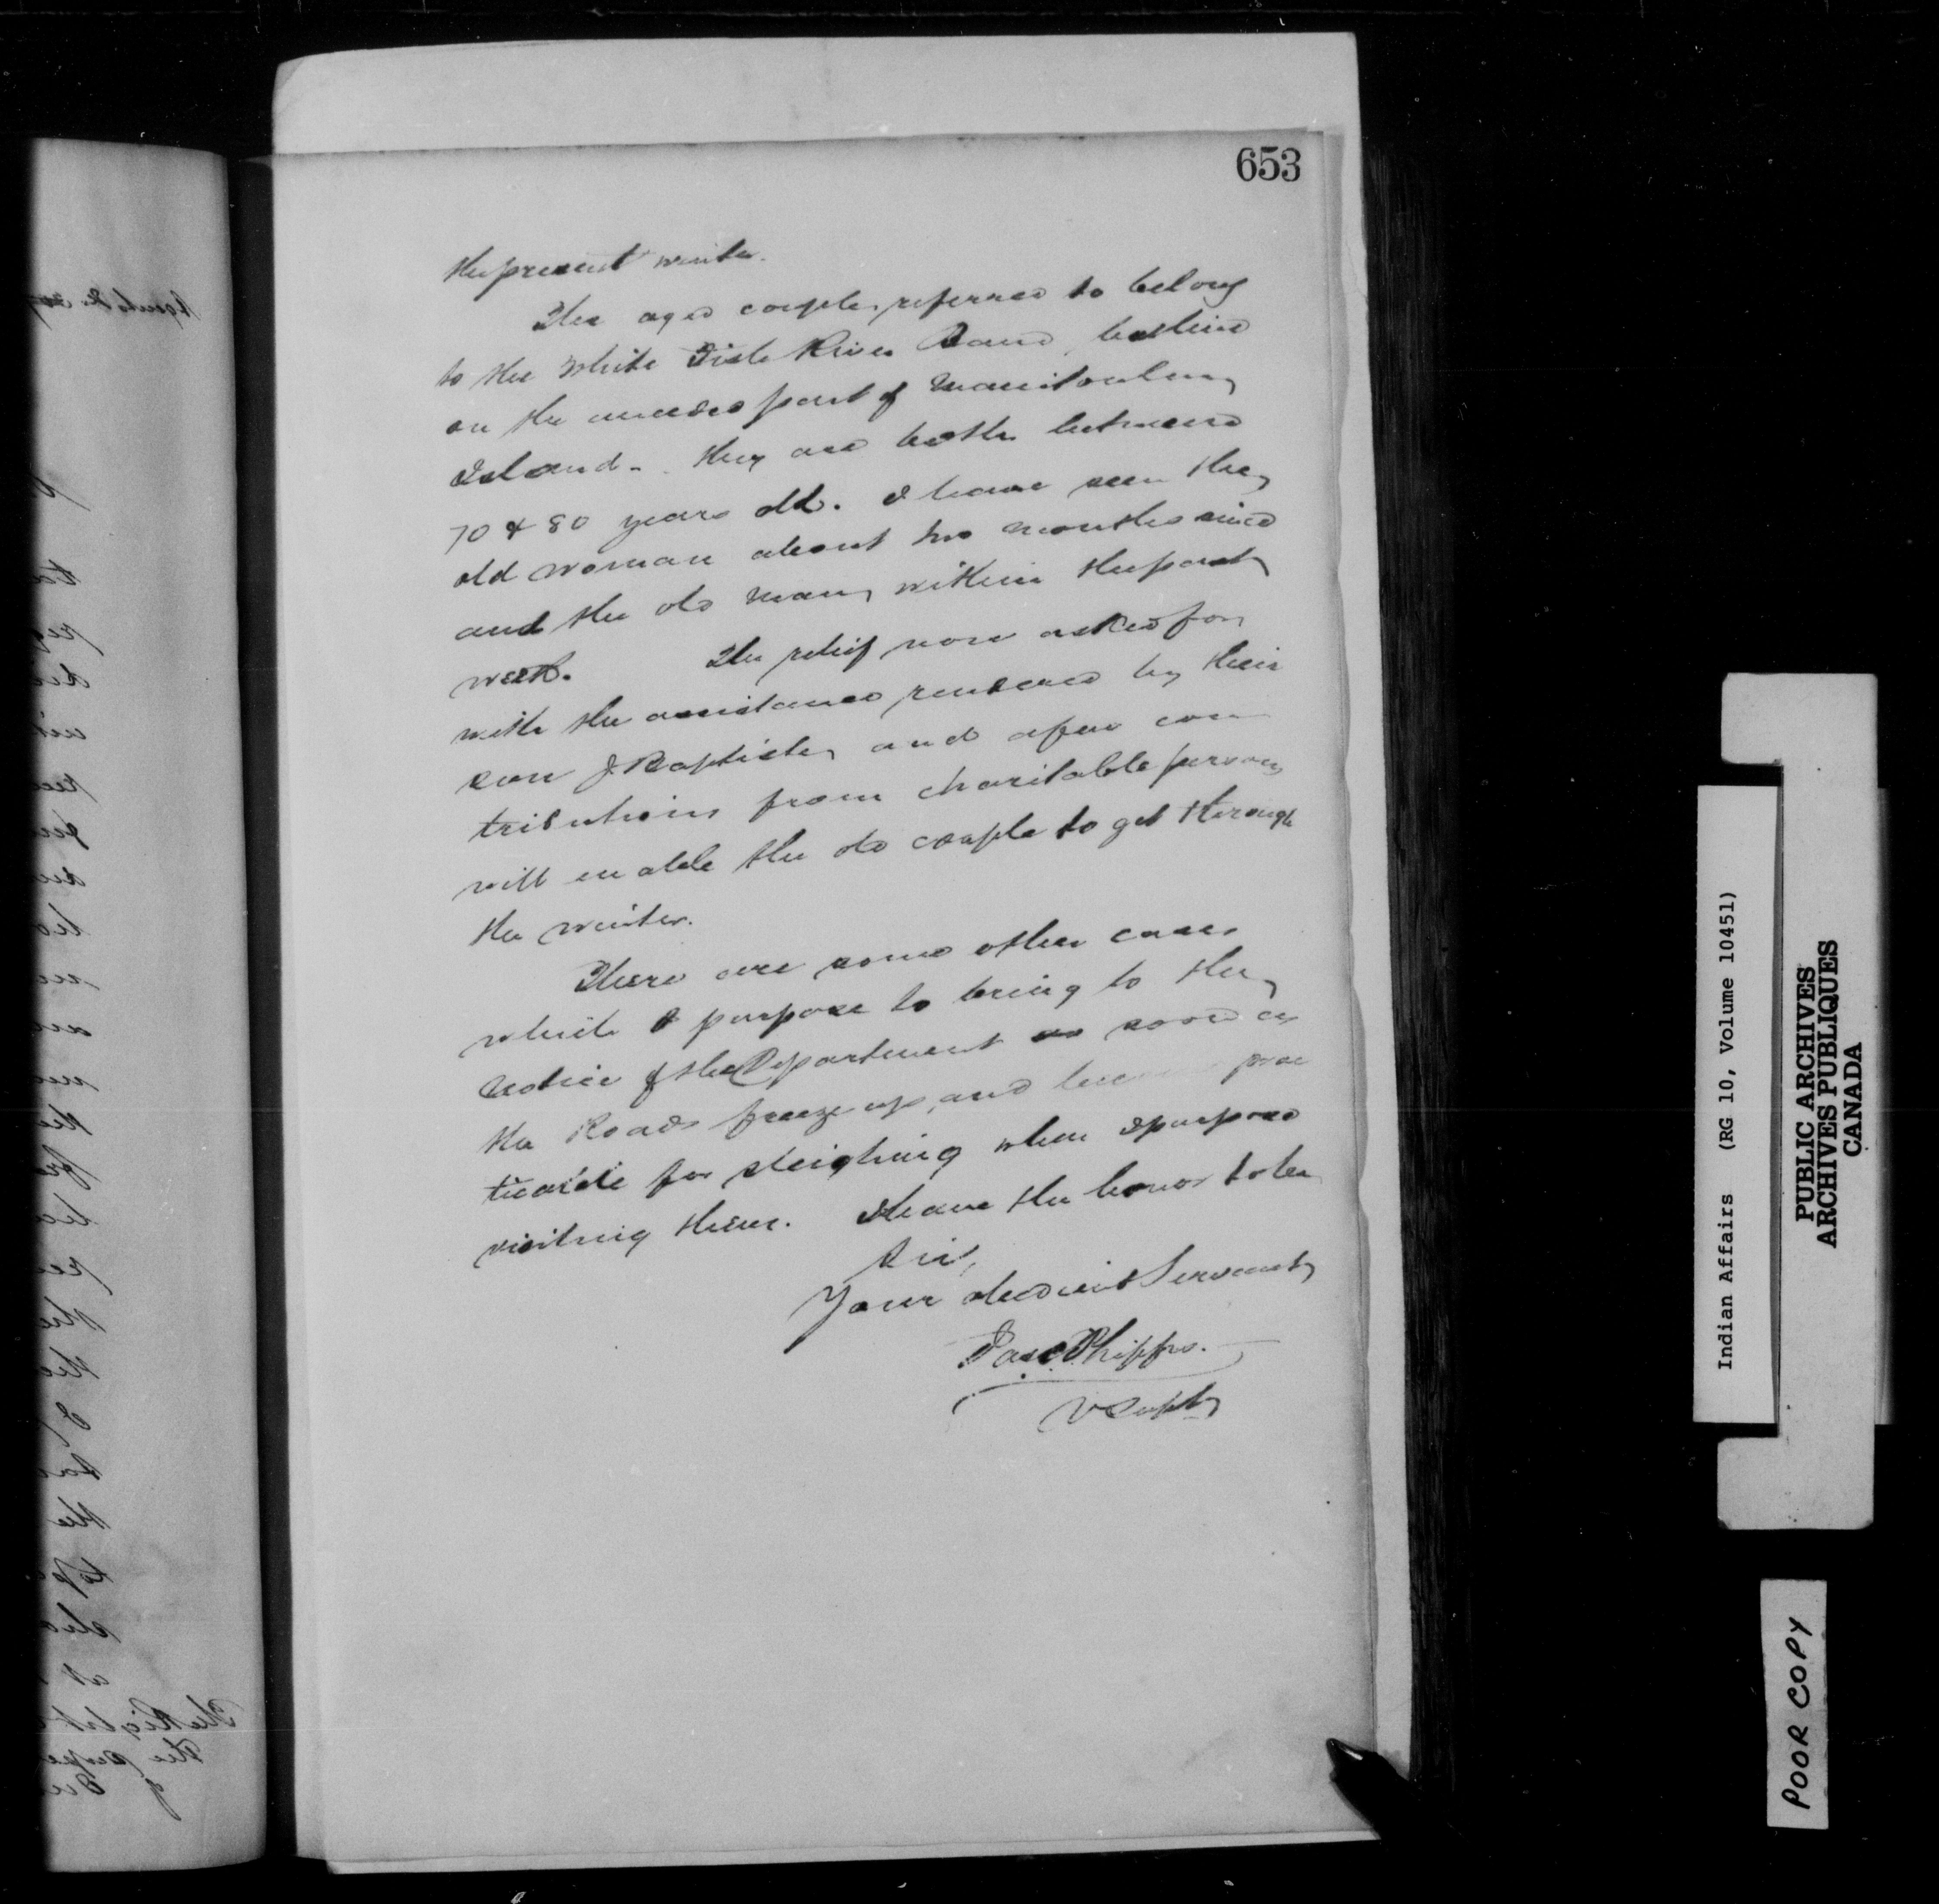 653
the present winter.
The aged couple referred to belong
to the White Fish River Band, but live
on the unceded part of Manitoulin
Island - they are both between
70 & 80 years old. I have seen the
old woman about two months since
and the old man within the past
week. The relief now asked for
with the assistance rendered by their
son J Baptiste, and a few con
tributions from charitable persons
will enable the old couple to get through
the winter.
There are some other cases
which I purpose to bring to the
notice of the Department as soon as
the Roads freeze up, and become prac
ticable for sleighing when I purpose
visiting them. I have the honor to be
Sir,
Your obedient Servant
Jas C Phipps.
V Supt
Indian Affairs (RG 10, Volume 10451)
PUBLIC ARCHIVES
ARCHIVES PUBLIQUES
CANADA
POOR COPY